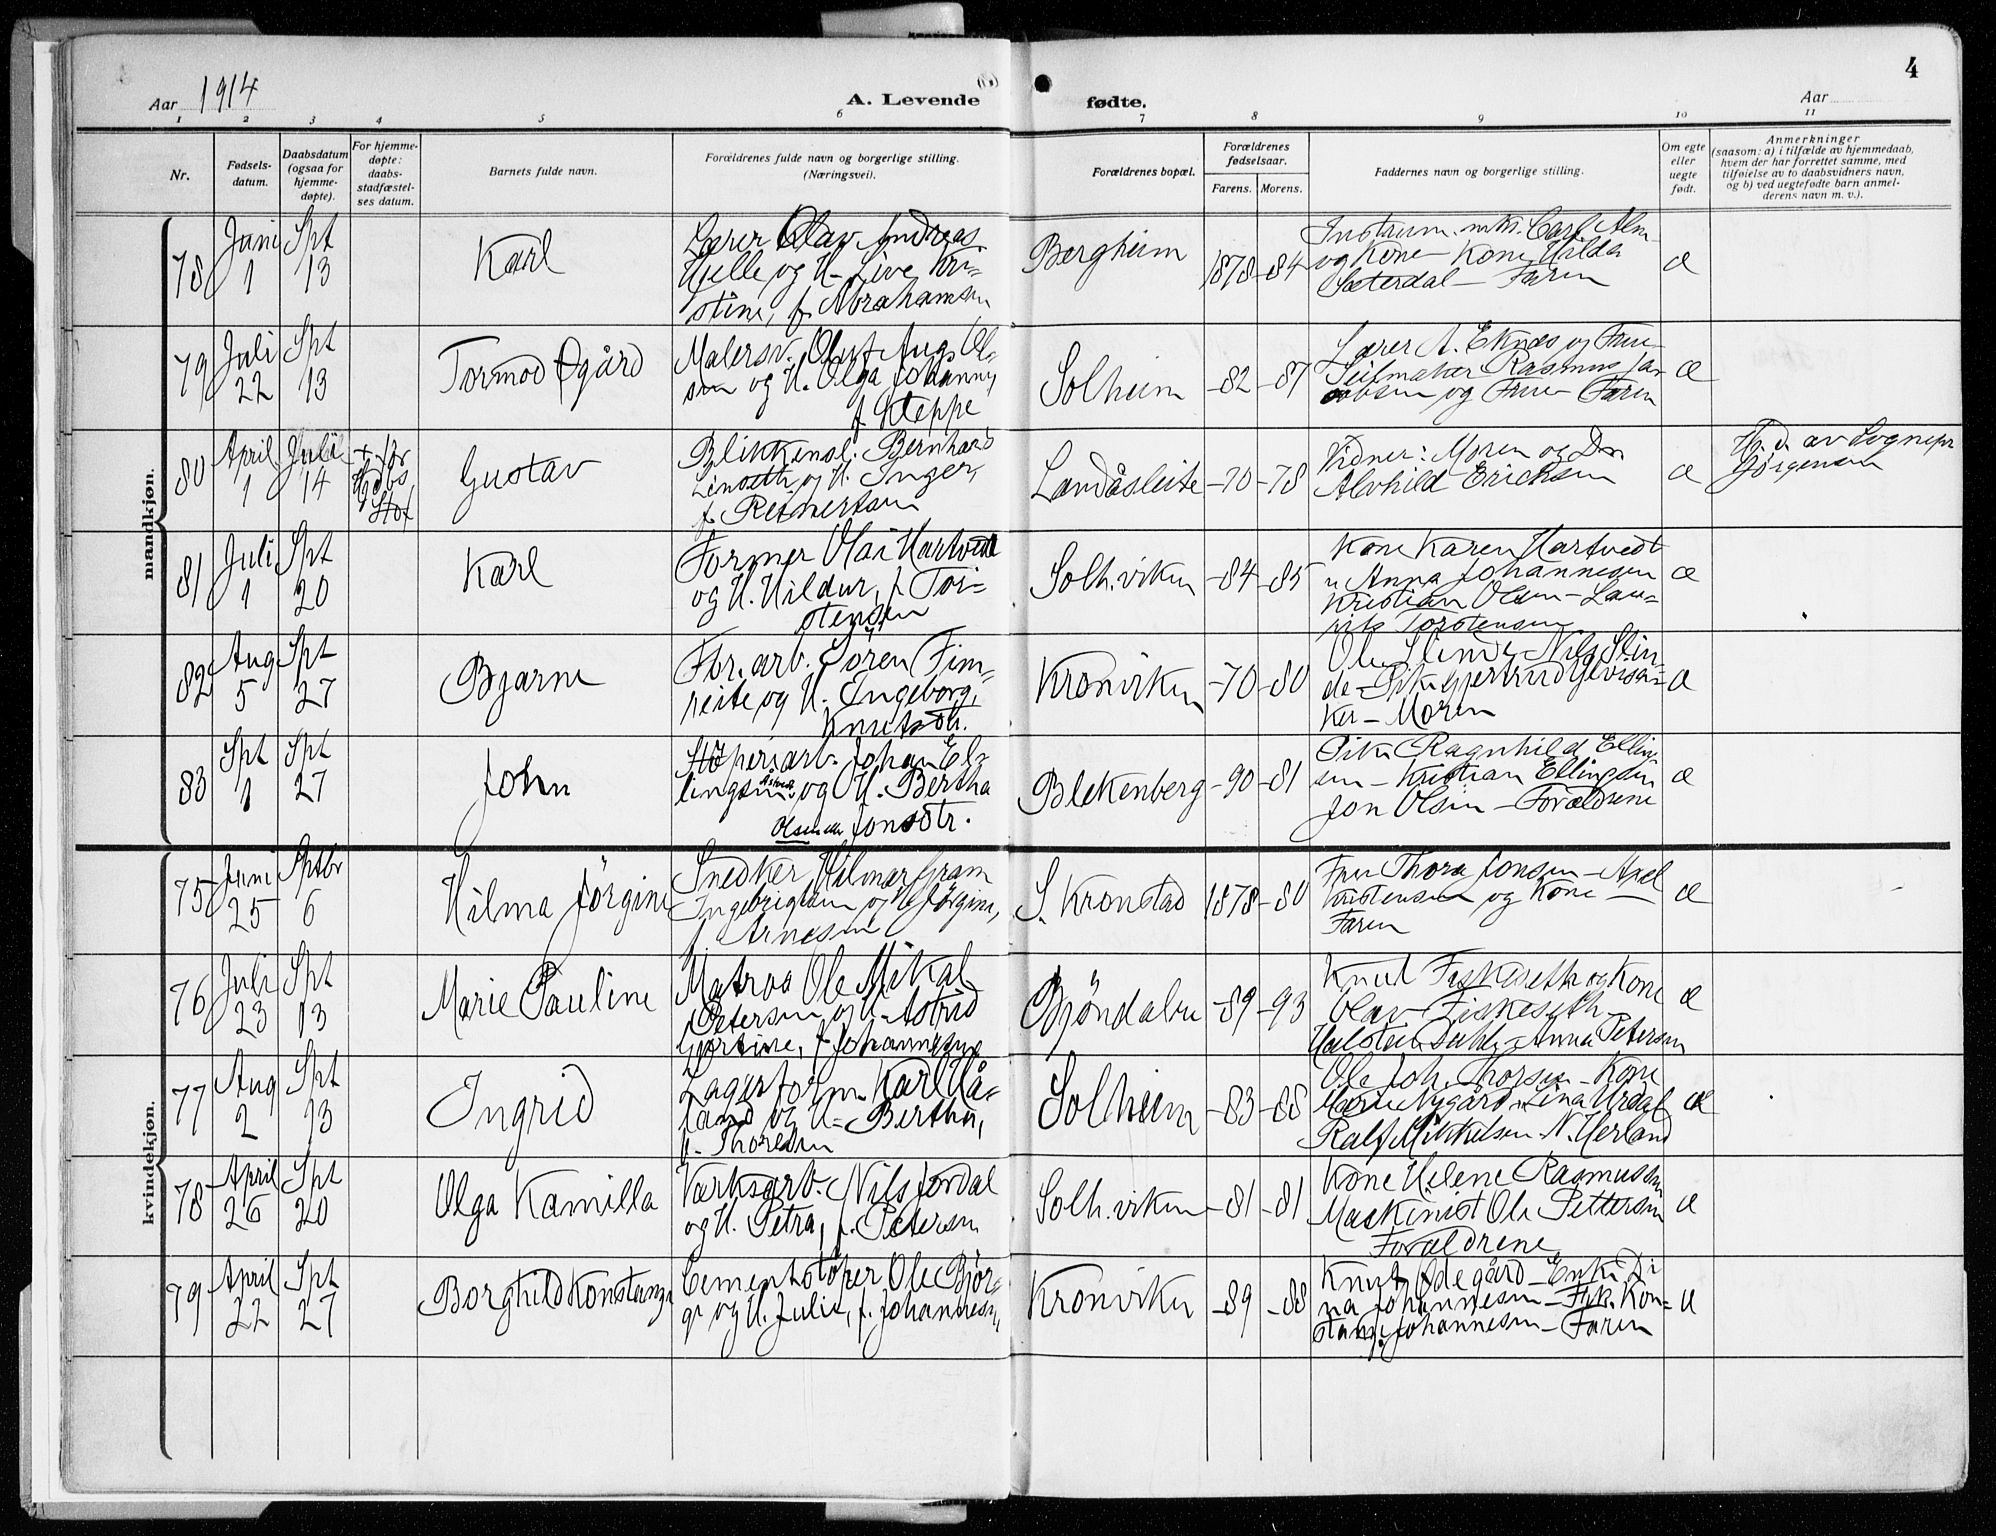 Aar 1914
A. Levende
fødte.
4
Aar
1 2 3 4 5 6 7 8 9 10 11
Nr.
Fødsels-
datum.
Daabsdatum
(ogsaa for
hjemme-
døpte).
For hjemme-
døpte:
daabs-
stadfæstel-
ses datum.
Barnets fulde navn.
Forældrenes fulde navn og borgerlige stilling.
(Næringsvei).
Forældrenes bopæl.
Forældrenes
fødselsaar.
Farens. Morens.
Faddernes navn og borgerlige stilling.
Om egte
eller
uegte
født.
Anmerkninger
(saasom: a) i tilfælde av hjemmedaab,
hvem der har forrettet samme, med
tilføielse av to daabsvidners navn,
og b) ved uegtefødte barn anmel-
derens navn m. v.).
mandkjøn.
78
Juni
1
Spt
13
Karl
Lærer Olav Andreas
Hjelle og H. Live Kri-
stine, f. Abrahamsen
Bergheim
1878 -84
Carl Alm
og Kone - Kone Hilda
Sæterdal - Faren
æ
79
Juli
22
Spt
13
Tormod Øgård
Malersv. Oluf Aug. Ol-
sen og H. Olga Johanne,
f. Steppe
Solheim
-82 -87
Lærer A. Eknes og Frue
Seilmaker Rasmus Ja-
cobsen og Frue - Faren
æ
80
April
1
Juli
14
Gustav
Blikkensl. Bernhard
og H. Inger,
f. Reinertsen
Landåsleite
-70 -78
Vidner: Moren og
Alvhild Ericksen
æ
Hj.d. av Sognepr
Jörgensen
81
Juli
1
Spt
20
Karl
Former Olai Hartvedt
og H. Hildur, f. Tor-
stensen
Solh.viken
-84 -85
Kone Karen Hartvedt
u Anna Johannesen
Kristian Olsen - Lau-
rits Torstensen
æ
82
Aug
5
Spt
27
Bjarne
For. arb. Sören Fim-
reite og H. Ingeborg,
Knutsdtr.
Kronviken
-70 -80
Ole Slinde Nils Slin-
de - Pike Gjertrud
ker - Moren
æ
83
Spt
1
Spt
27
John
Støperiarb. Johan El-
lingsen og H. Bertha
Olsen eller Jonsdtr.
Blekenberg
-90 -81
Pike Ragnhild Elling
sen - Kristian Ellingsen
Jon Olsen - Forældrene
æ
kvindekjøn.
75
Juni
25
Sptbr
6
Hilma Jörgine
Snedker Hilmar Gram
Ingebrigtsen og H. Jörgine,
f. Arnesen
S. Kronstad
1878 -80
Fru Thora Jonsen - Axel
Kristensen og Kone
Faren
æ
76
Juli
23
Spt
13
Marie Pauline
Matros Ole Mikal
Petersen og H. Astrid
f. Johannesen
Bjöndalen
-89 -93
Knut Fiskeseth og Kone
Olav Fiskeseth
Halsten Dahl - Anna Petersen
æ
77
Aug
2
Spt
13
Ingrid
Lagerform. Karl Hå-
land og H. Bertha,
f. Thoresen
Solheim
-83 -88
Ole Joh. Thorsen - Kone
Marie Nygård Lina Urdal
Ralf Mikkelsen N. Herland
æ
78
April
26
Spt
20
Olga Kamilla
Værksarb. Nils Jordal
og H. Petra, f. Petersen
Solh.viken
-81 -81
Kone Helene Rasmussen
Maskinist Ole Pettersen
Forældrene
æ
79
April
22
Spt
27
Borghild Konstanze
Cementstöper Ole Björ-
ge og H. Julie, f. Johannesen
Kronviken
-89 -88
Knut Ødegård - Enke Di
na Johannesen - Frk. Kon-
stanse Johannesen - Faren
æ